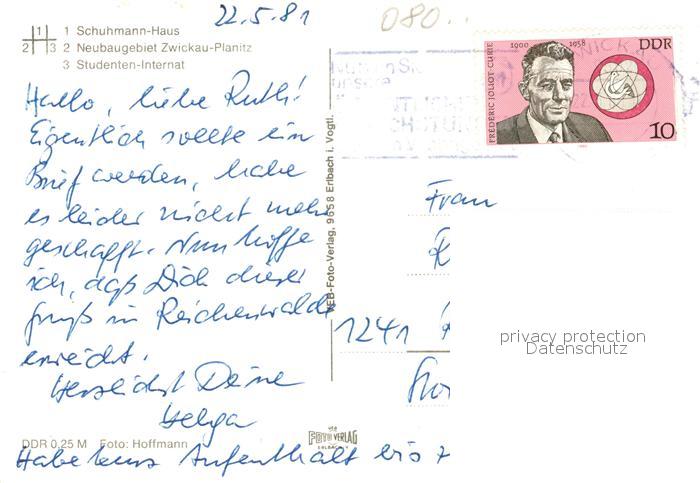 22.5.81
080..
1 Schuhmann-Haus
2 Neubaugebiet Zwickau-Planitz
3 Studenten-Internat
1
2 3
FRÉDÉRIC JOLIOT-CURIE
1900 1958
DDR
10
Hallo, liebe Ruth!
Eigentlich sollte ein
Brief werden, habe
es leider nicht mehr
geschafft. Nun hoffe
ich, daß Dich dieser
Gruß in Reichenwalde
erreicht.
Herzlichst Deine
Helga
VEB-Foto-Verlag, 9658 Erlbach i. Vogtl.
Frau
1241
privacy protection
Datenschutz
DDR 0,25 M Foto: Hoffmann
FOTO VERLAG
ERLBACH
Habe kurz Aufenthalt bis 7